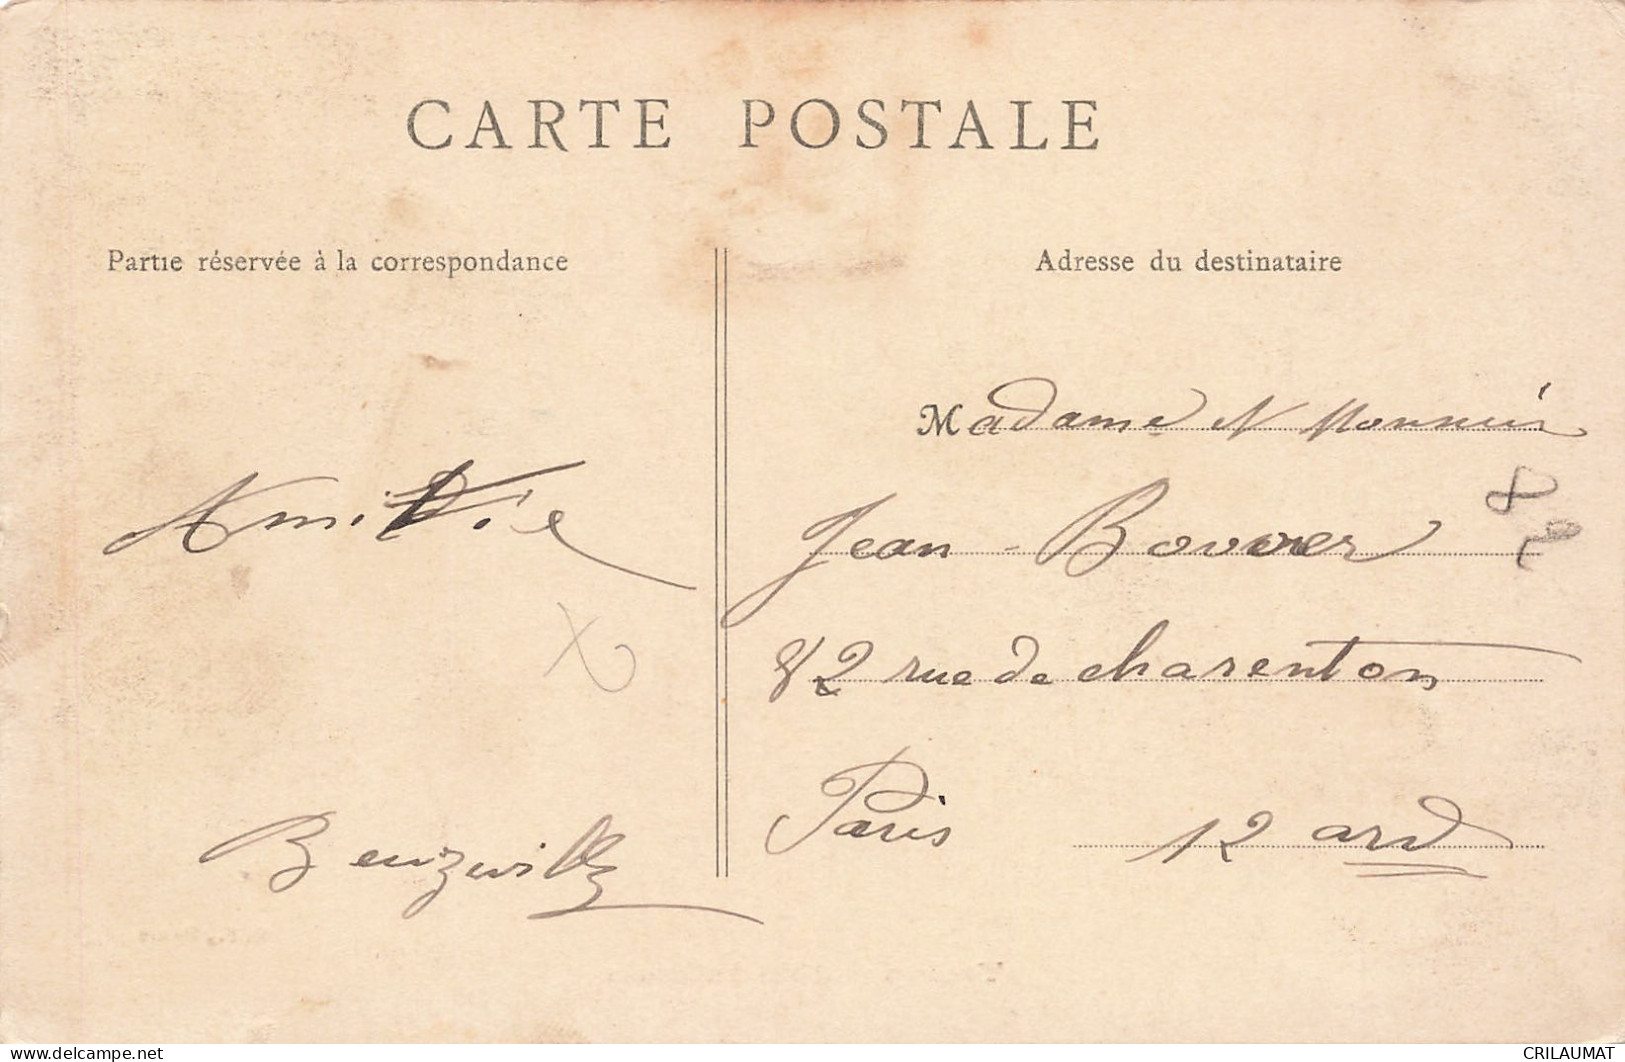 CARTE POSTALE
Partie réservée à la correspondance
Adresse du destinataire
Amitié
Madame N Monnier
Jean - Bouvier
82 rue de charenton
Paris 12 ard
www.delcampe.net
CRILAUMAT